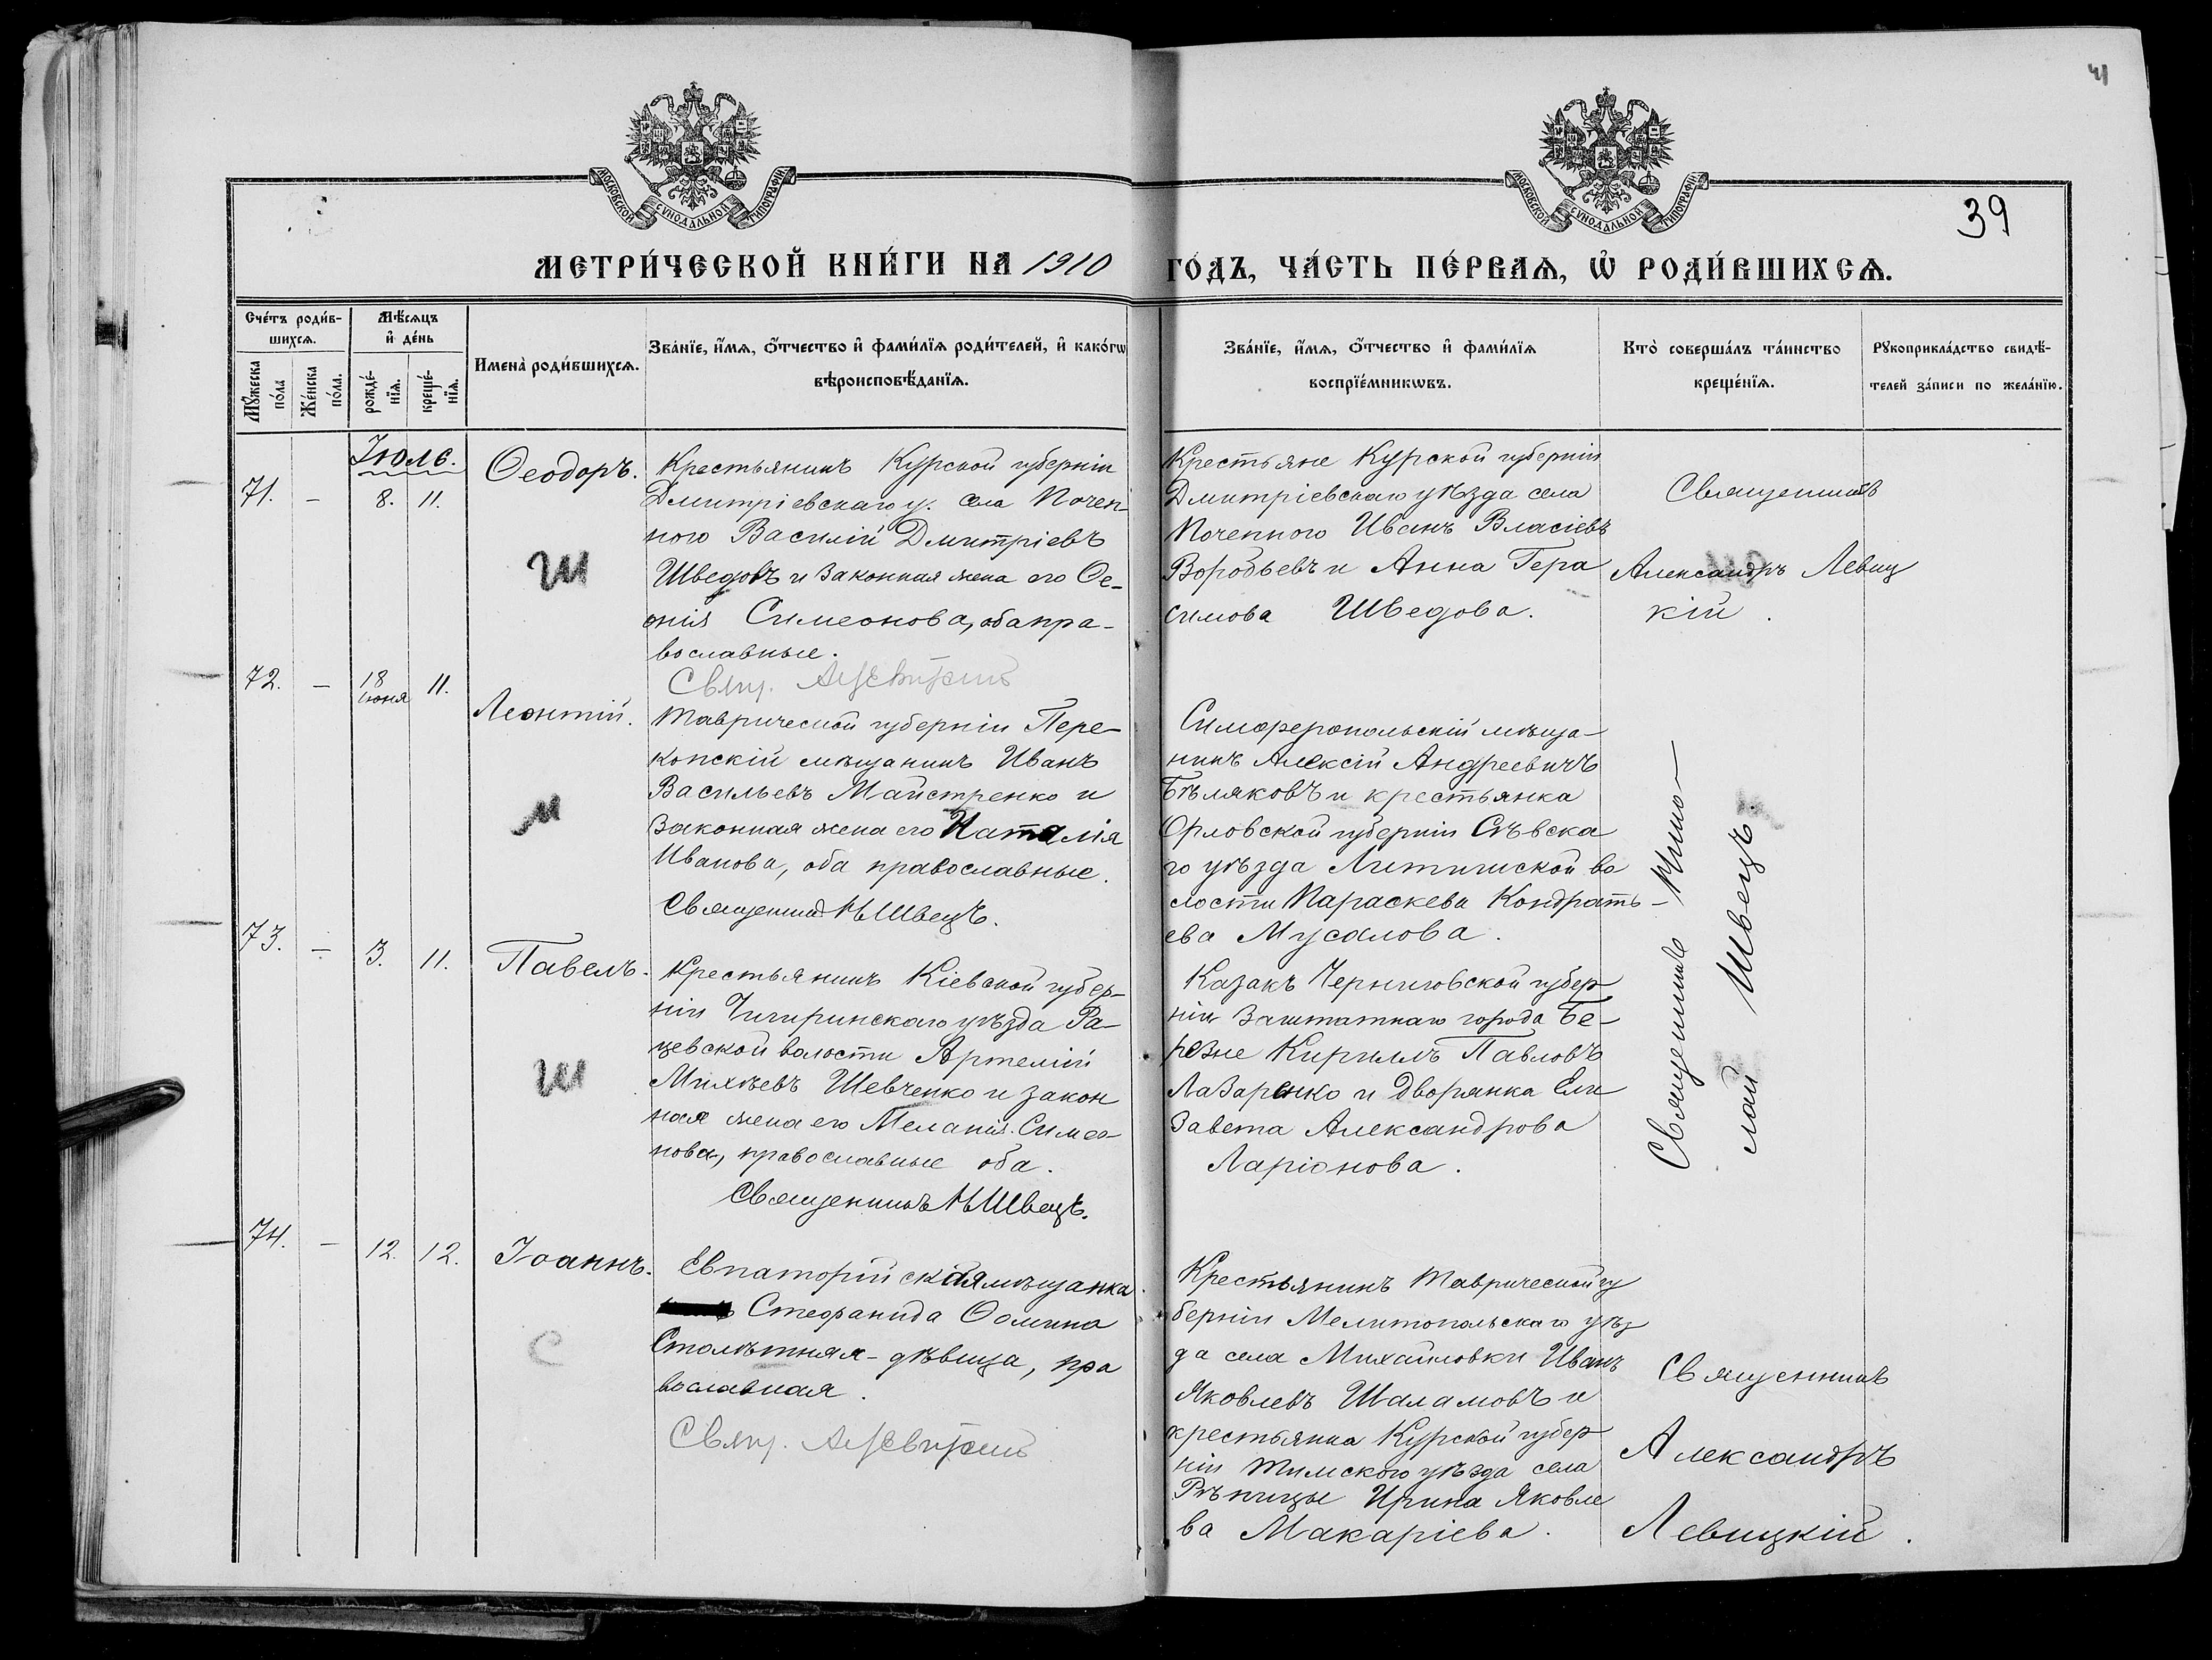 41
МОСКОВСКОЙ СѴНОДАЛЬНОЙ ТИПОГРАФІИ
МОСКОВСКОЙ СѴНОДАЛЬНОЙ ТИПОГРАФІИ
39
МЕТРИ́ЧЕСКОЙ КНИ́ГИ НА 1910 ГО́ДЪ, ЧА́СТЬ ПЕ́РВАѦ, Ѡ҆ РОДИ́ВШИХСѦ.
Сче́тъ роди́в-
шихсѧ.
Мꙋ́жеска
по́ла
Же́нска
по́ла.
Мѣ́сѧцъ
и҆ де́нь
рожде́-
нїѧ.
креще́-
нїѧ.
Имена̀ роди́вшихсѧ.
Зва́нїе, и҆́мѧ, ѻ҆́тчество и҆ фами́лїѧ роди́телей, и҆ како́гѡ
вѣроисповѣ́данїѧ.
Зва́нїе, и҆́мѧ, ѻ҆́тчество и҆ фами́лїѧ
воспрїе́мникѡвъ.
Кто̀ соверша́лъ та́инство
креще́нїѧ.
Рꙋкоприкла́дство свидѣ́-
телей за́писи по жела́нїю.
Іюль.
71. - 8. 11.
Ѳеодоръ.
Ш
Крестьянинъ Курской губерніи
Дмитріевскаго у. села Почеп-
ного Василій Дмитріевъ
Шведовъ и законная жена его Ѳе-
онія Симеонова, оба пра-
вославные.
Свящ. А Левитскій
Крестьяне Курской губерніи
Дмитріевскаго уѣзда села
Почепного Иванъ Власіевъ
Воробьевъ и Анна Гера
симова Шведова.
Священникъ
Александръ Левиц
кій.
72. - 18 іюня 11.
Леонтій.
М
Таврической губерніи Пере-
копскій мѣщанинъ Иванъ
Васильевъ Майстренко и
законная жена его Наталія
Иванова, оба православные.
Священникъ Н Швецъ.
Симферопольскій мѣща-
нинъ Алексій Андреевичъ
Бѣляковъ и крестьянка
Орловской губерніи Сѣвска
го уѣзда Литижской во
лости Параскева Кондрать-
ева Мусалова.
Священникъ Нико-
лай Швецъ
73. - 3. 11.
Павелъ.
Ш
Крестьянинъ Кіевской губер-
ніи Чигиринскаго уѣзда Ра-
цевской волости Артемій
Михѣевъ Шевченко и закон
ная жена его Меланія Симео-
нова, православные оба.
Священникъ Н Швецъ.
Казакъ Черниговской губер
ніи Заштатнаго города Бе-
резне Кириллъ Павловъ
Лазаренко и дворянка Ели
завета Александрова
Ларіонова.
74. - 12. 12.
Іоаннъ.
С
Евпаторійская мѣщанка
Стефанида Ѳомина
Столѣтняя-дѣвица, пра
вославная.
Свящ. А Левитскій
Крестьянинъ Таврической гу
берніи Мелитопольскаго уѣз
да села Михайловки Иванъ
Яковлевъ Шаламовъ и
крестьянка Курской губер
ніи Тимского уѣзда села
Рѣпицы Ирина Яковле
ва Макаріева.
Священникъ
Александръ
Левицкій.